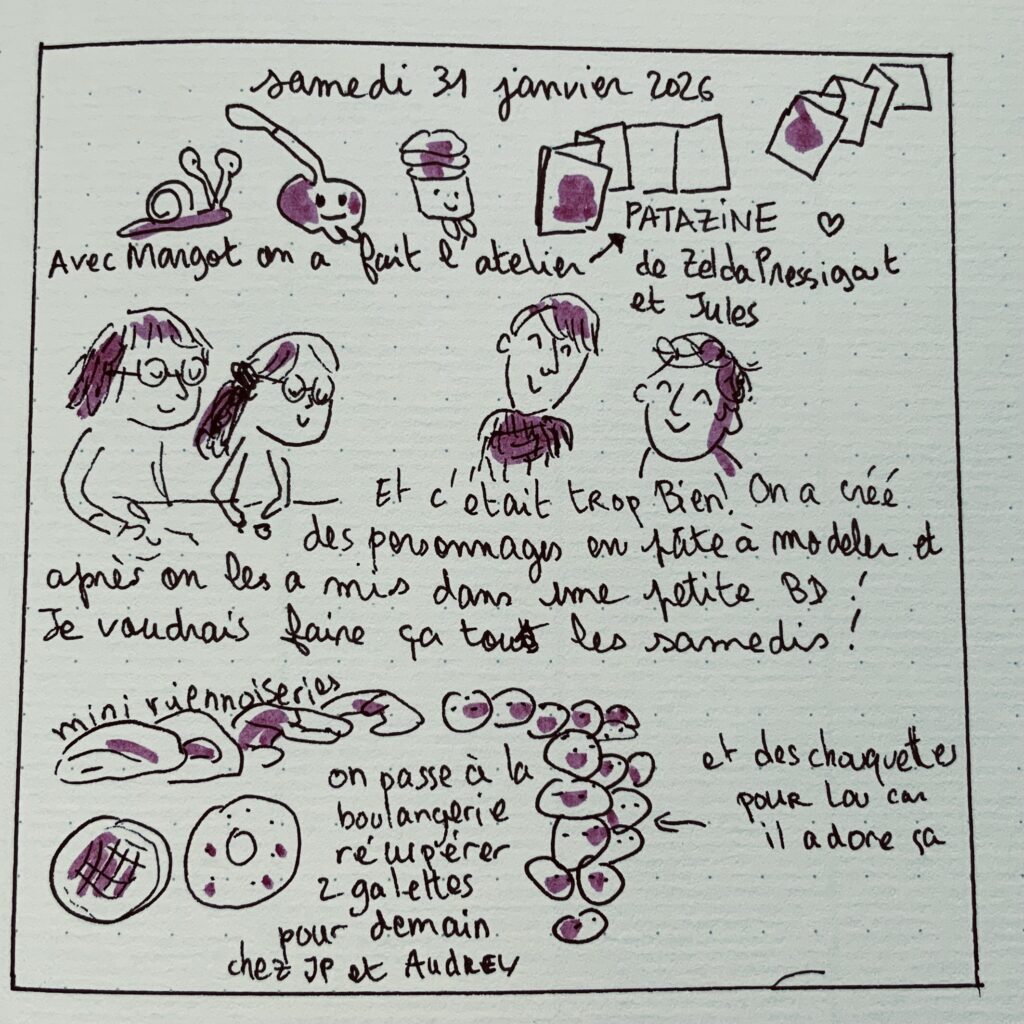 samedi 31 janvier 2026
Avec Margot on a fait l'atelier
PATAZINE
de Zelda Pressigout
et Jules
Et c'était trop Bien! On a créé
des personnages en pâte à modeler et
après on les a mis dans une petite BD !
Je voudrais faire ça tous les samedis !
mini viennoiseries
on passe à la
boulangerie
récupérer
2 galettes
pour demain
chez JP et AUDREY
et des chouquettes
pour Lou car
il adore ça